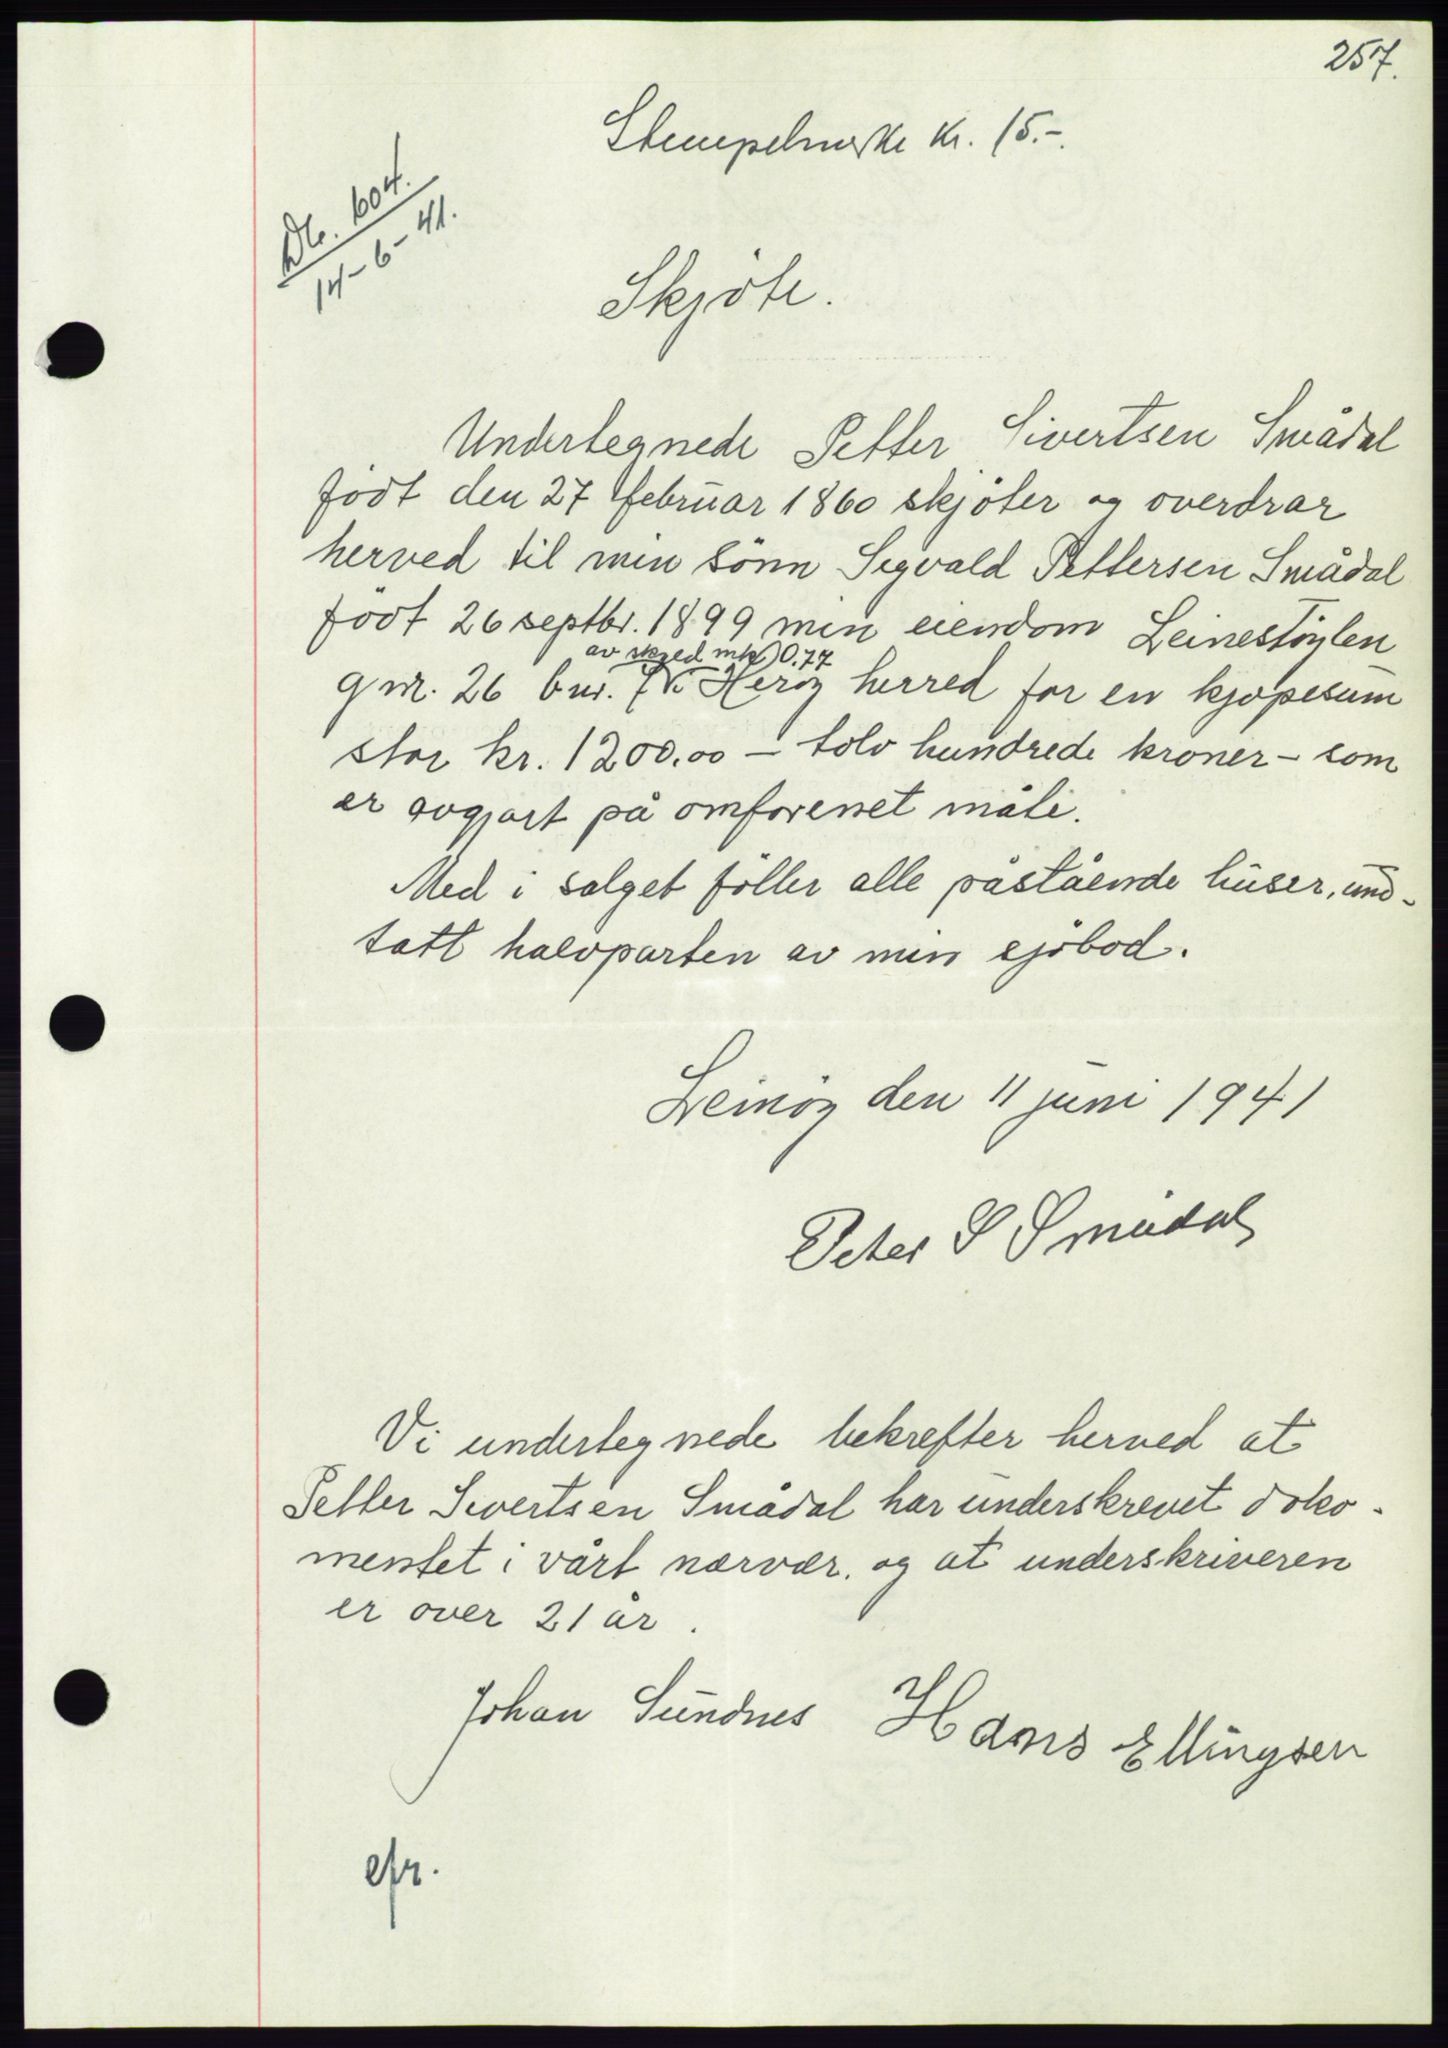 257.
Stempelmerke kr. 15.-.
Db. 604.
14-6-41.
Skjöte.
Undertegnede Petter Sivertsen Smådal
födt den 27 februar 1860 skjöter og overdrar
herved til min sönn Sigvald Pettersen Smådal
födt 26 septbr. 1899 min eiendom Leinestöylen
av skyld mk 0.77
gnr. 26 bnr. 7 i Heröy herred for en kjöpesum
stor kr. 1200.00 – tolv hundrede kroner – som
er avgjort på omforenet måte.
Med i salget föller alle påstående huser, und-
tatt halvparten av min sjöbod.
Leinöy den 11 juni 1941
Peter S Smådal
Vi undertegnede bekrefter herved at
Petter Sivertsen Smådal har underskrevet doko-
mentet i vårt nærvær. og at underskriveren
er over 21 år.
Johan Sundnes Hans Ellingsen
efr.